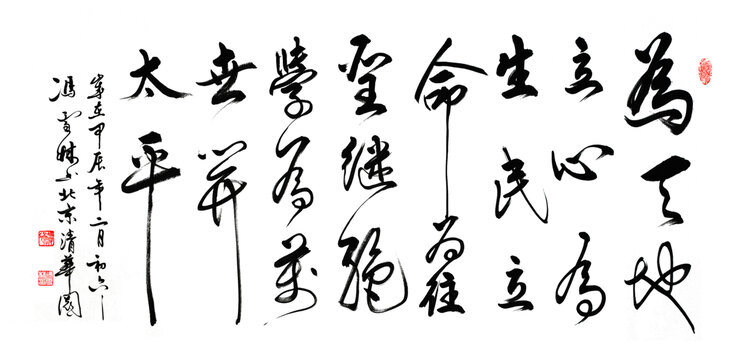 為天地
立心為
生民立
命為往
聖繼絕
學為萬
世開
太平
歲在甲辰年二月初六
馮雪 於北京清華園